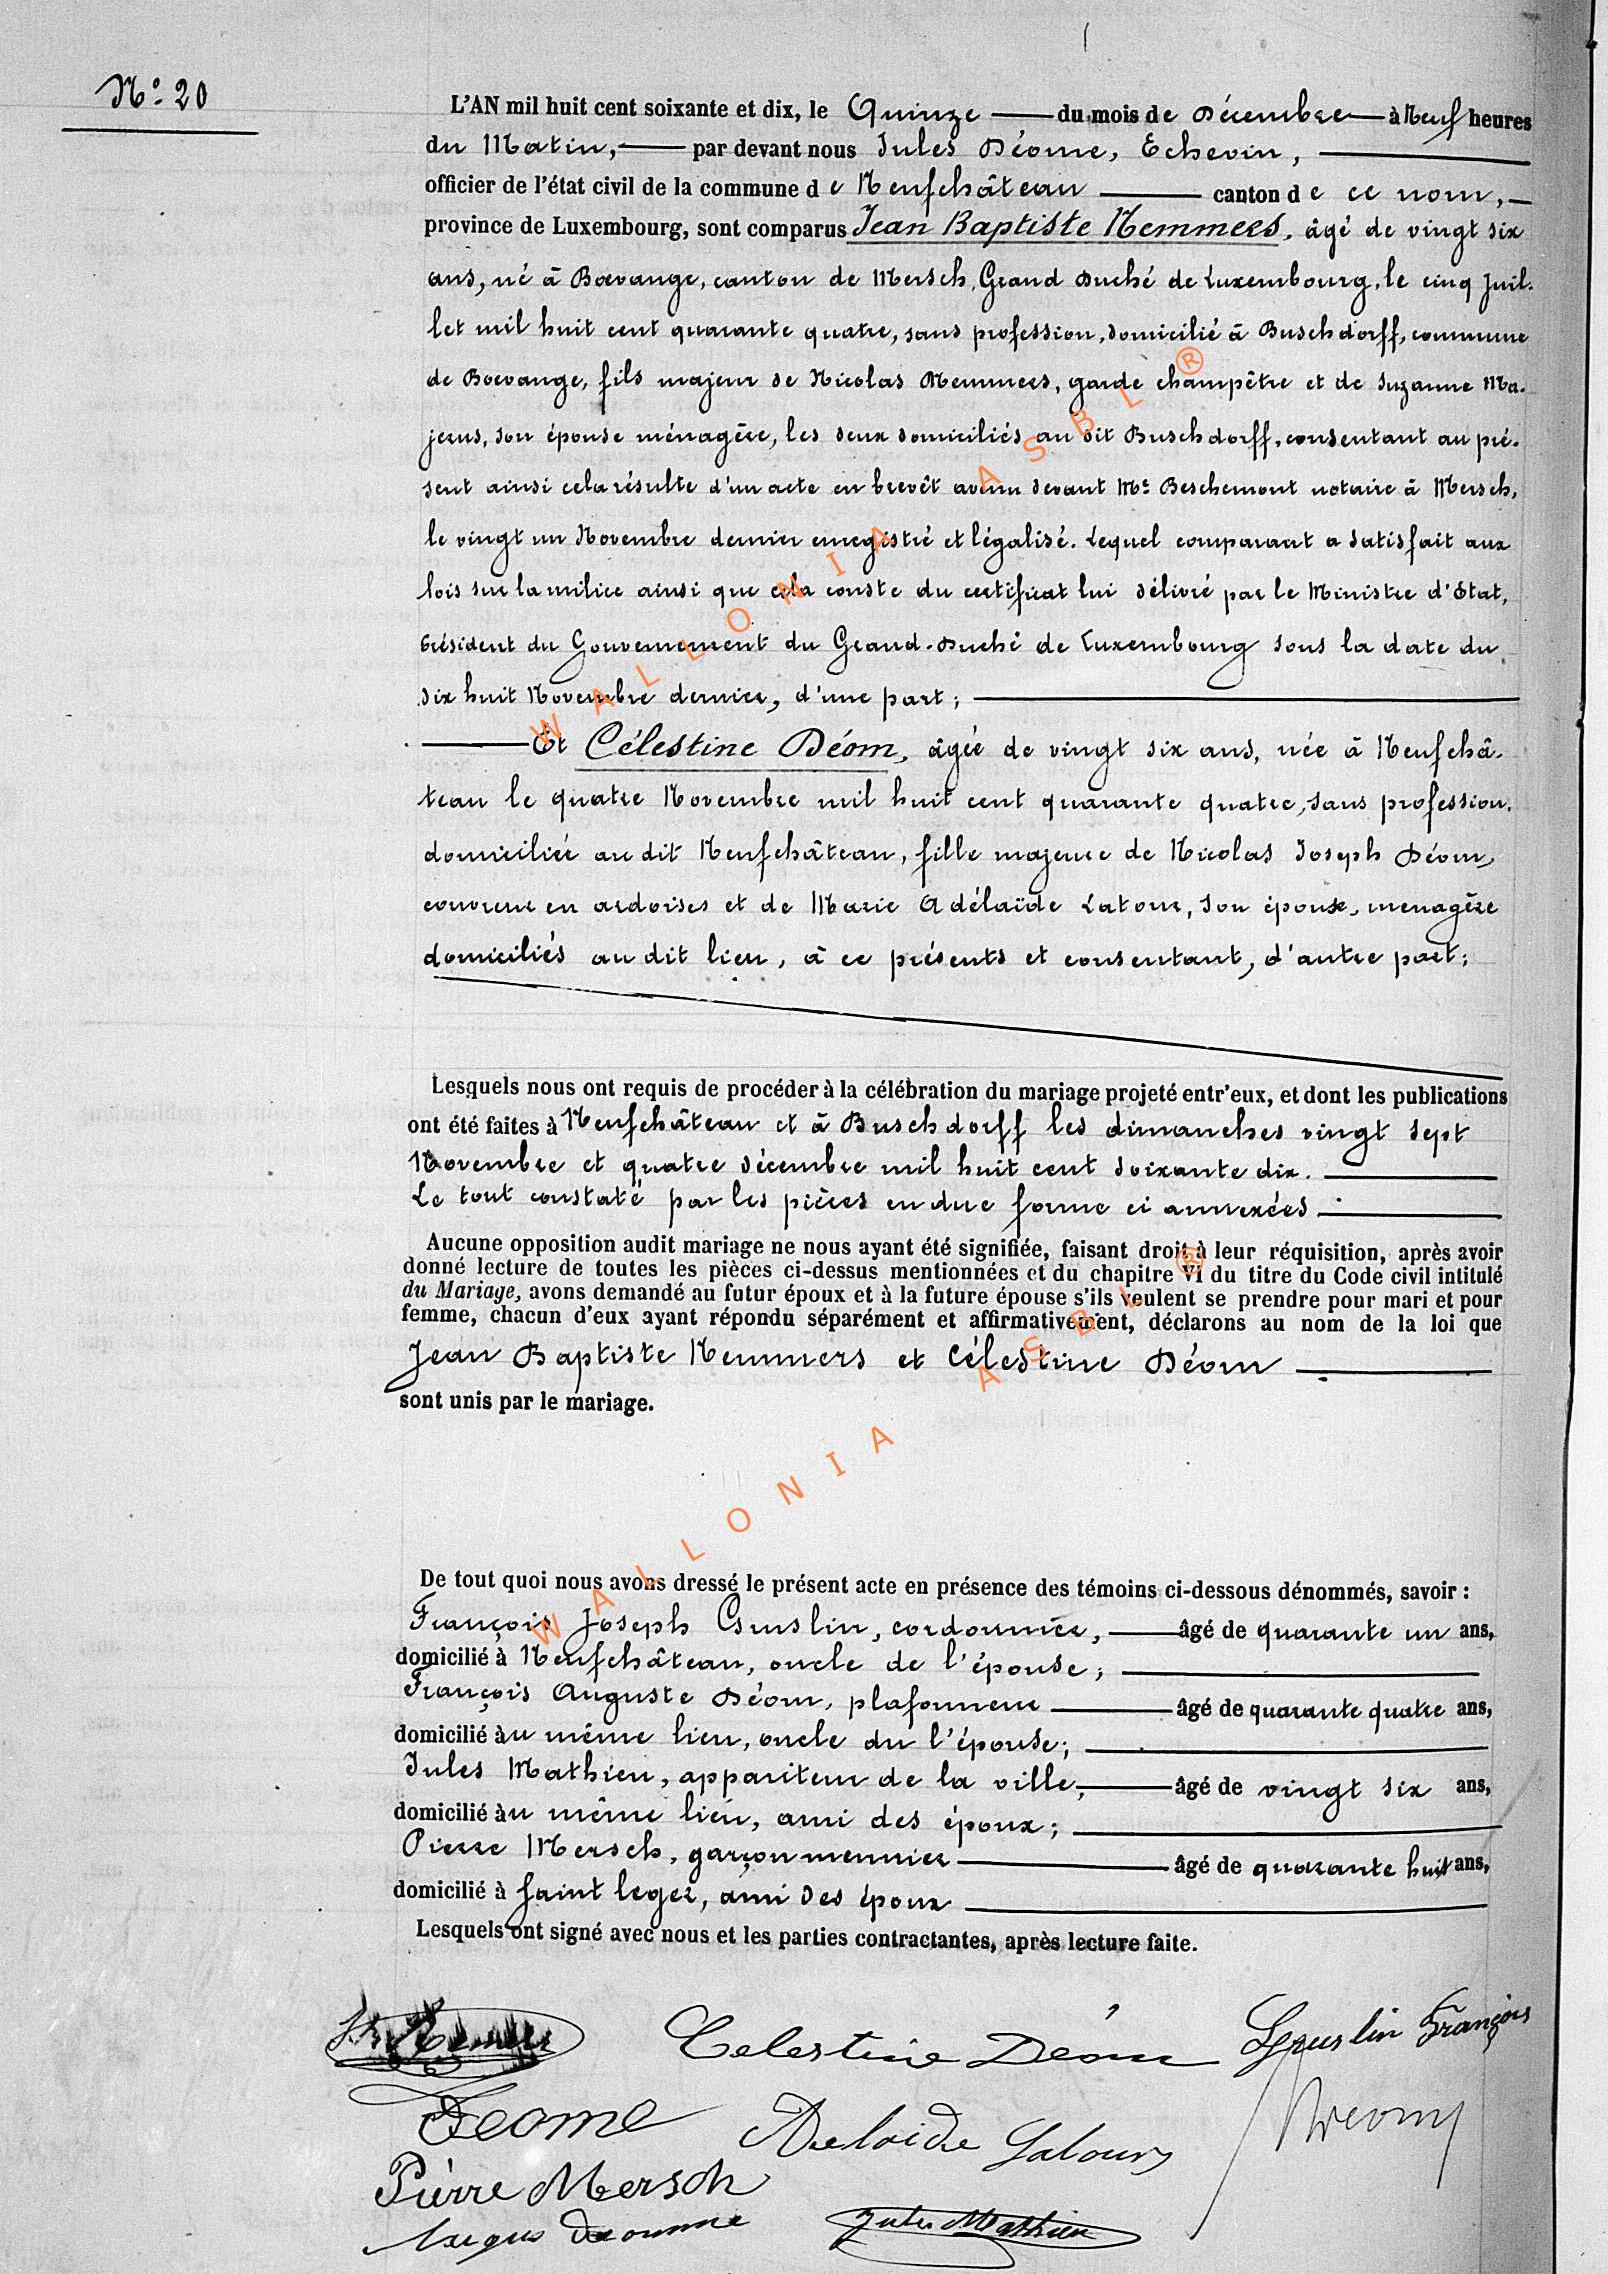 N° 20
L'AN mil huit cent soixante et dix, le Quinze du mois de Décembre à Neuf heures
du Matin, par devant nous Jules Déome, Echevin,
officier de l'état civil de la commune de Neufchâteau canton de ce nom,
province de Luxembourg, sont comparus Jean Baptiste Nemmers, âgé de vingt six
ans, né à Boevange, canton de Mersch, Grand Duché de Luxembourg, le cinq Juil-
let mil huit cent quarante quatre, sans profession, domicilié à Buschdorff, commune
de Boevange, fils majeur de Nicolas Nemmers, garde champêtre et de Suzanne Ma-
jerus, son épouse ménagère, les deux domiciliés au dit Buschdorff, consentant au pré-
sent ainsi cela résulte d'un acte en brevêt avenu devant Me Beschemont notaire à Mersch,
le vingt un Novembre dernier enregistré et légalisé. Lequel comparant a satisfait aux
lois sur la milice ainsi que cela conste du certificat lui délivré par le Ministre d'Etat,
Président du Gouvernement du Grand-Duché de Luxembourg sous la date du
dix huit Novembre dernier, d'une part;
Et Célestine Déom, âgée de vingt six ans, née à Neufchâ-
teau le quatre Novembre mil huit cent quarante quatre, sans profession,
domiciliée au dit Neufchâteau, fille majeure de Nicolas Joseph Déom,
couvreur en ardoises et de Marie Adélaïde Latour, son épouse, menagère
domiciliés au dit lieu, à ce présents et consentant, d'autre part;
Lesquels nous ont requis de procéder à la célébration du mariage projeté entr'eux, et dont les publications
ont été faites à Neufchâteau et à Buschdorff les dimanches vingt sept
Novembre et quatre décembre mil huit cent soixante dix.
Le tout constaté par les pièces en due forme ci annexées
Aucune opposition audit mariage ne nous ayant été signifiée, faisant droit à leur réquisition, après avoir
donné lecture de toutes les pièces ci-dessus mentionnées et du chapitre VI du titre du Code civil intitulé
du Mariage, avons demandé au futur époux et à la future épouse s'ils veulent se prendre pour mari et pour
femme, chacun d'eux ayant répondu séparément et affirmativement, déclarons au nom de la loi que
Jean Baptiste Nemmers et Célestine Déom
sont unis par le mariage.
De tout quoi nous avons dressé le présent acte en présence des témoins ci-dessous dénommés, savoir :
François Joseph Gruslin, cordonnier, âgé de quarante un ans,
domicilié à Neufchâteau, oncle de l'épouse;
François Auguste Déom, plafonneur âgé de quarante quatre ans,
domicilié au même lieu, oncle du l'épouse;
Jules Mathieu, appariteur de la ville, âgé de vingt six ans,
domicilié au même lieu, ami des époux;
Pierre Mersch, garçon meunier âgé de quarante huit ans,
domicilié à Saint leger, ami des époux
Lesquels ont signé avec nous et les parties contractantes, après lecture faite.
Celestine Déom
Gruslin François
Deome
Adelaide Latour
Déom
Pierre Mersch
Jules Mathieu
WALLONIA ASBL ®
WALLONIA ASBL ®